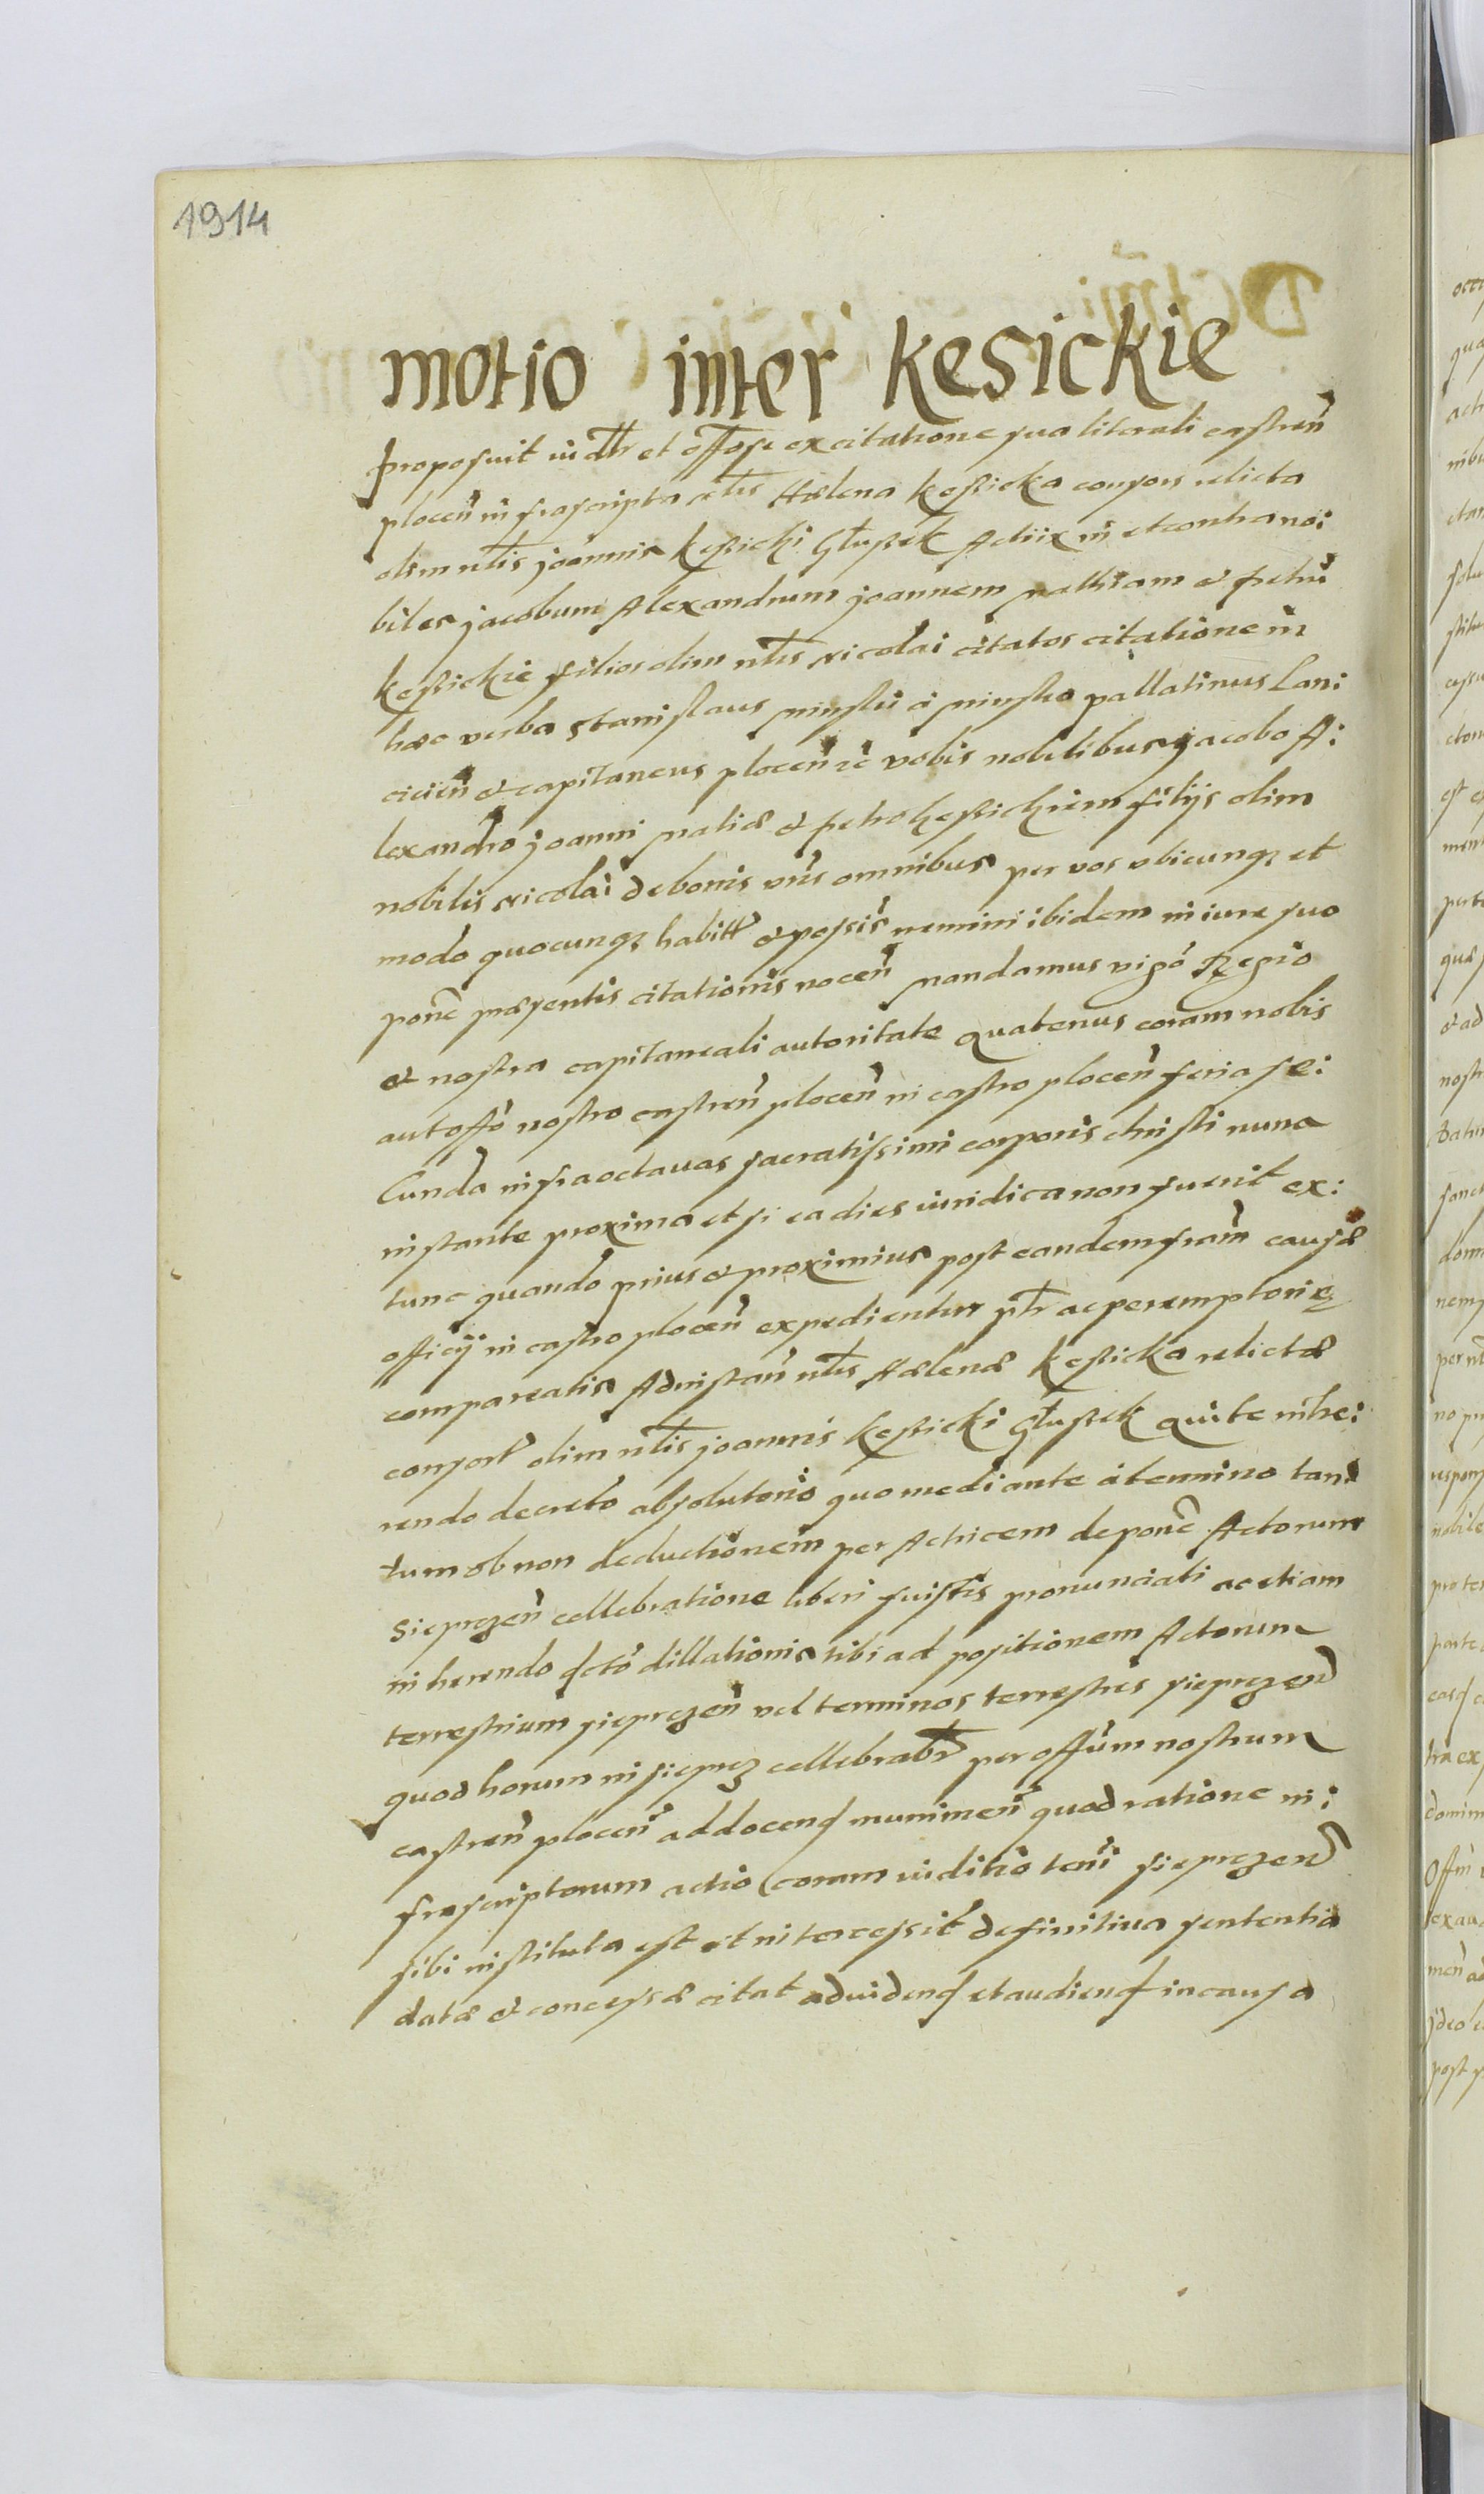 1914
motio inter Kesickie
proposuit iudtr et offose ex citatione sua literali castren
plocen infrascripta nlis Hælena Kesicka consors relicta
olim nlis joannis Kesicki Głusek Actrix in et contra no:
biles jacobum Alexandrum joannem Mathiam et petru
Kesickie filios olim nlis Nicolai citatos citatione in
hæc verba Stanislaus Minski a Minsko pallatinus Lan:
cicien et capitaneus plocen zc vobis nobilibus jacobo A:
lexandro joanni Matiæ et petro Kesickiem filijs olim
nobilis Nicolai de bonis vris omnibus per vos vbicunqz et
modo quocunqz habitt et possis nemini ibidem in iure suo
ponc præsentis citationis nocen Mandamus vigo Regio
et nostra capitaneali autoritate quatenus coram nobis
aut offo nostro castren plocen in castro plocen feria se:
cunda infra octauas sacratissimi corporis christi nunc
instante proxima et si ea dies iuridica non fuerit ex:
tunc quando prius et proximius post eandem fram causæ
officij in castro plocen expedientur ptr ac peremptorie
compareatis Ad instan nlis Hælenæ Kesicka relictæ
consort olim nlis joannis Kesicki Głusek Qui te inhe:
rendo decreto absolutorio quo mediante a termino tan
tum ob non deductionem per Actricem de ponc Actorum
Sieprzen cellebratione liberi fuistis pronunciati ac etiam
inherendo dcto dillationis tibi ad positionem Actorum
terrestrium sieprzen vel terminos terrestres sieprzen
quod horum in sieprz cellebrabr per offum nostrum
castren plocen ad docend munimen quod ratione in:
frascriptorum actio coram iuditio terri sieprzen
sibi instituta est et intercessit definitiua sententia
datæ et concessæ citat ad uidend et audiend in causa